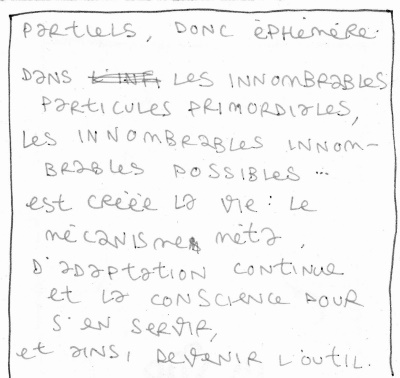 partiels, donc éphémère.
dans l'infi les innombrables
particules primordiales,
les innombrables innom-
brables possibles ...
est créée la vie : le
mécanisme méta,
d'adaptation continue
et la conscience pour
s'en servir,
et ainsi devenir l'outil.